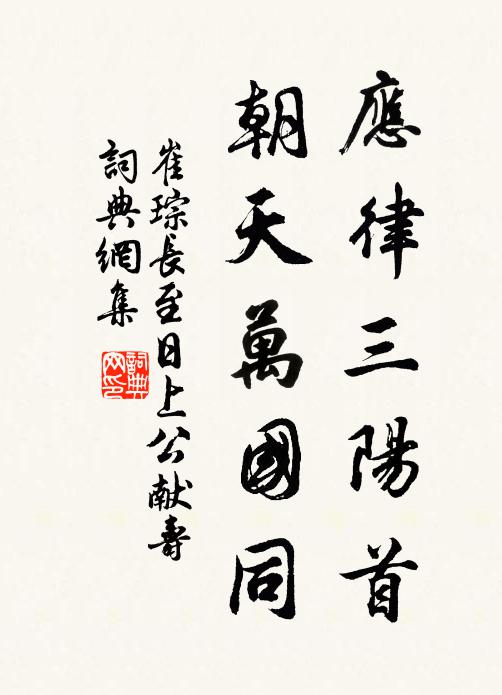 應律三陽首
朝天萬國同
崔琮長至日上公献壽
詞典網集
詞典网印